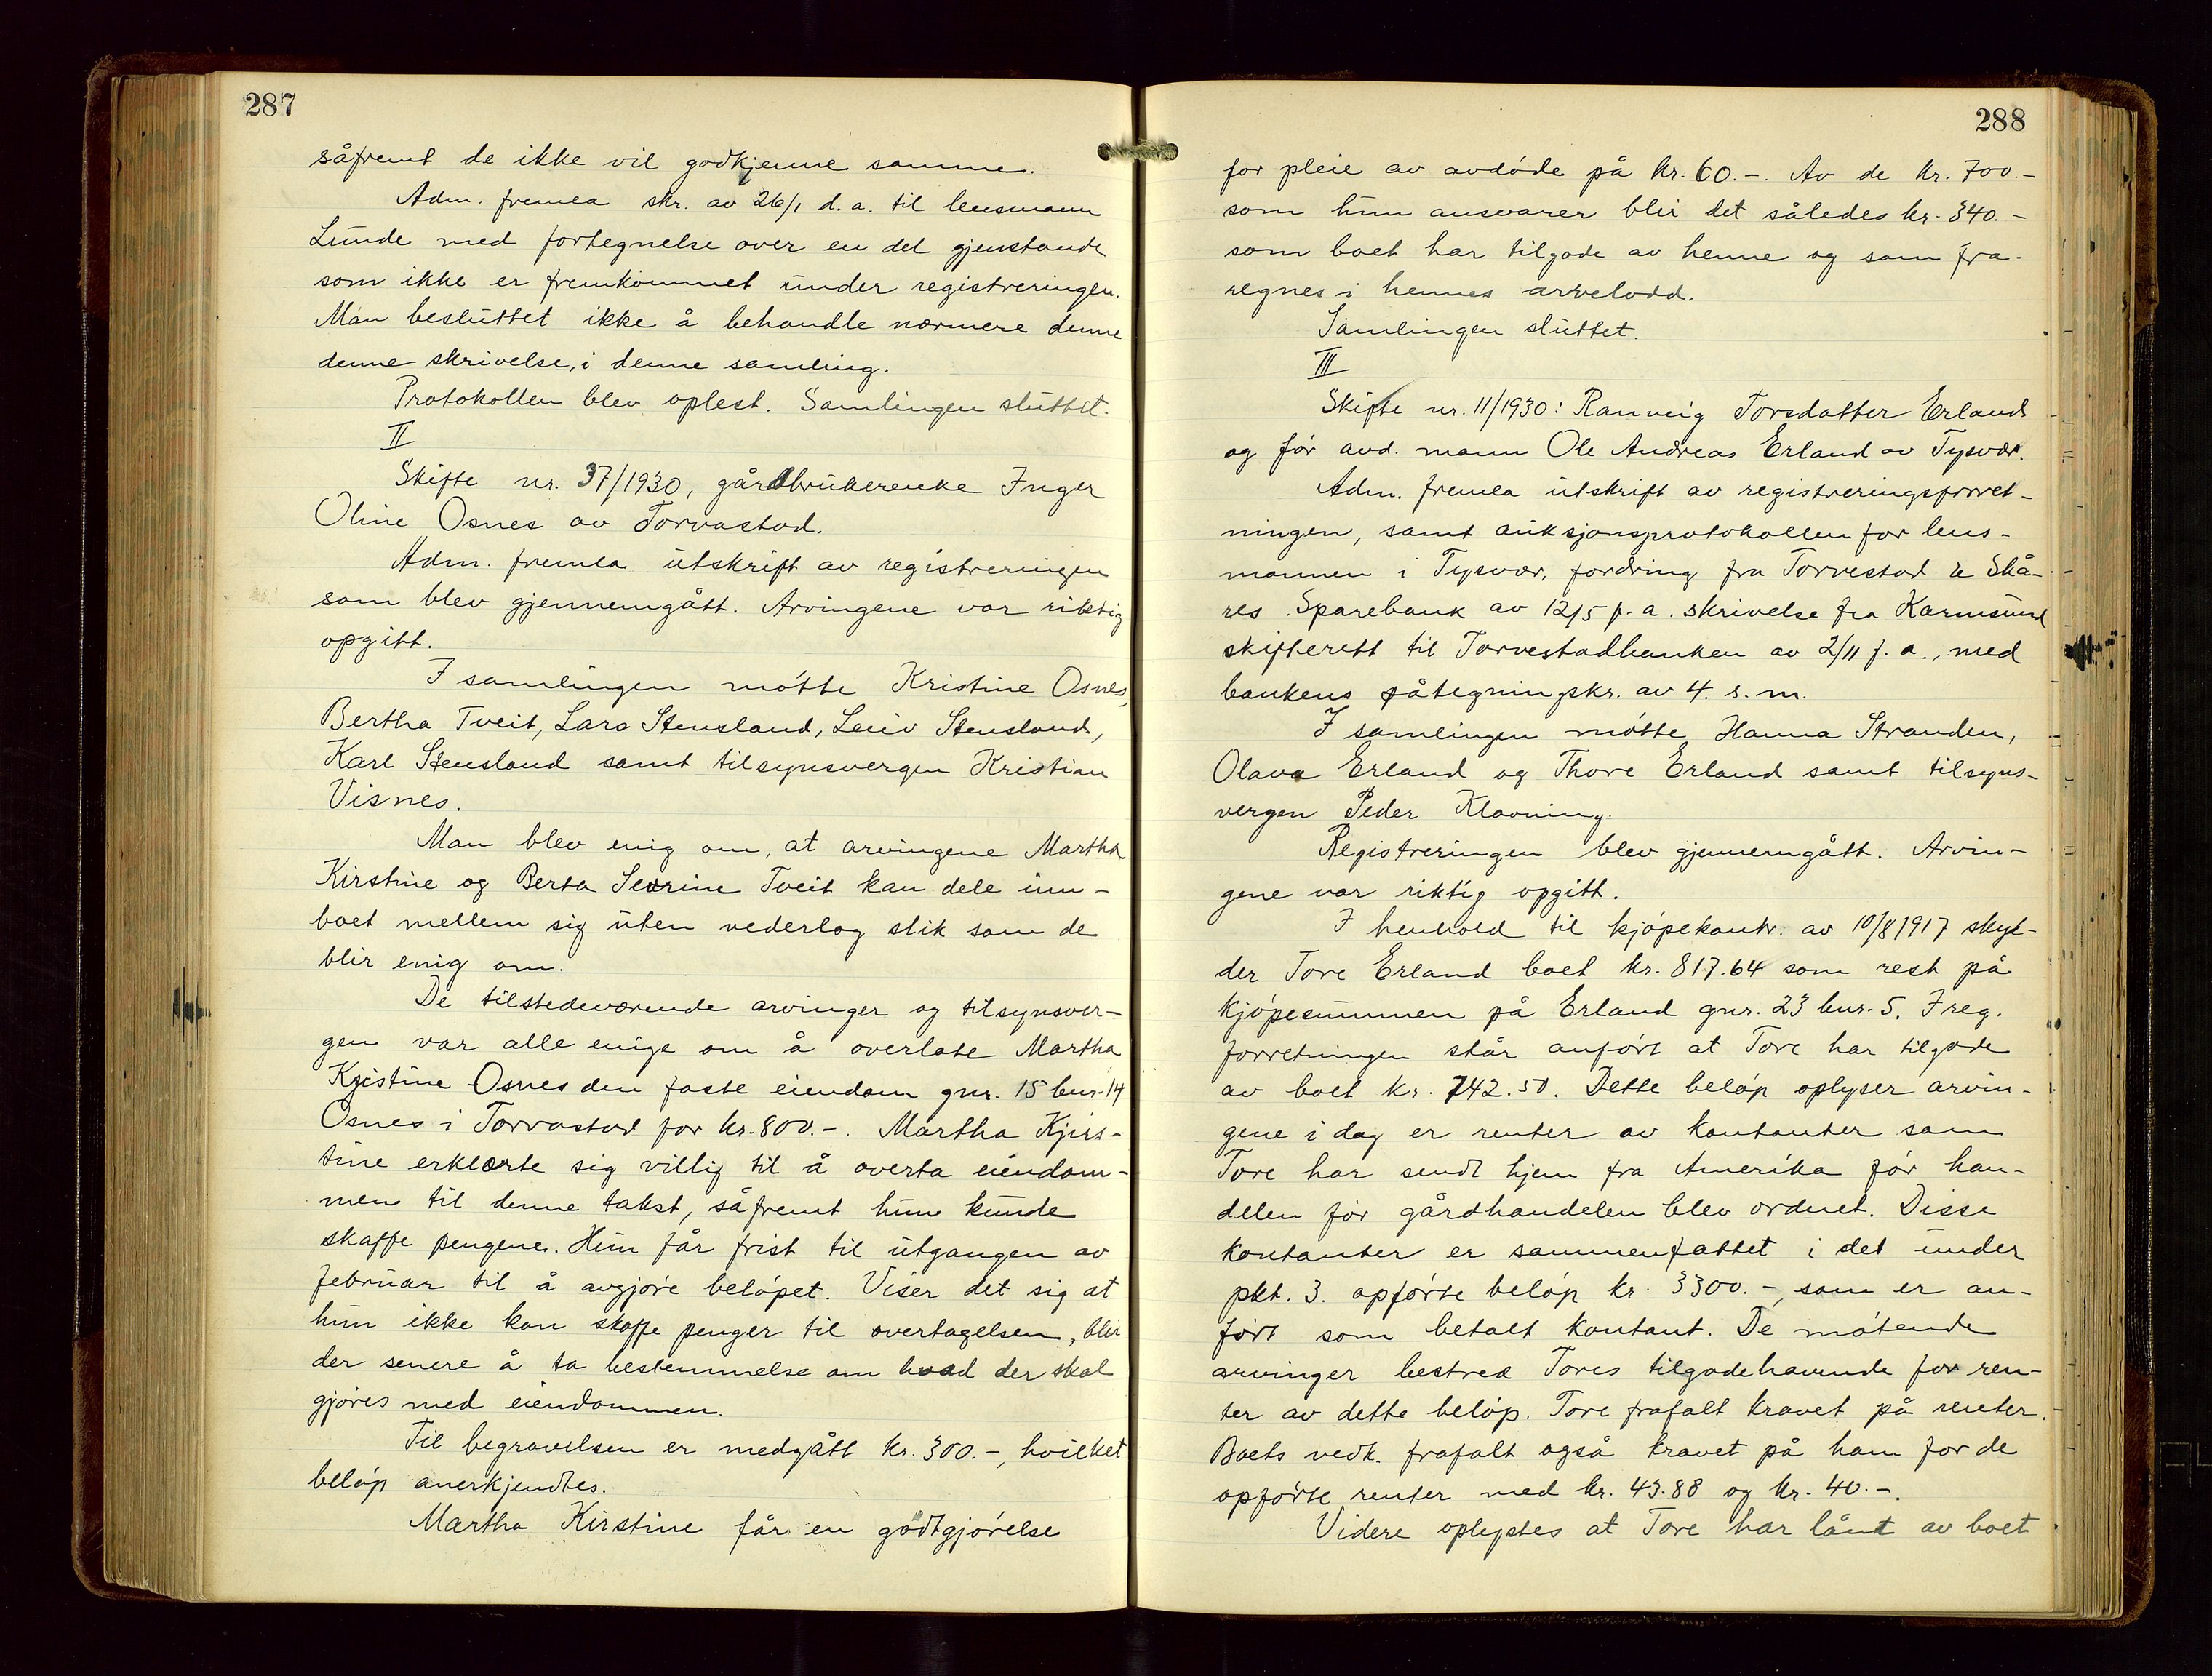 287
såfremt de ikke vil godkjenne samme.
Adm. fremla skr. av 26/1 d.a. til lensmann
Lunde med fortegnelse over en del gjenstande
som ikke er fremkommet under registreringen.
Man besluttet ikke å behandle nærmere denne
denne skrivelse, i denne samling.
Protokollen blev oplest. Samlingen sluttet.
II
Skifte nr. 37/1930, gårdbrukerenke Inger
Oline Osnes av Torvastad.
Adm. fremla utskrift av registreringen
som blev gjennemgått. Arvingene var riktig
opgitt.
I samlingen møtte Kristine Osnes,
Bertha Tveit, Lars Stensland, Leiv Stensland,
Karl Stensland samt tilsynsvergen Kristian
Visnes.
Man blev enig om, at arvingene Martha
Kirstine og Berta Serine Tveit kan dele inn-
boet mellem sig uten vederlag slik som de
blir enig om.
De tilstedeværende arvinger og tilsynsver-
gen var alle enige om å overlate Martha
Kristine Osnes den faste eiendom gnr. 15 bnr. 14
Osnes i Torvastad for kr. 800.-. Martha Kjirs-
tine erklærte sig villig til å overta eiendom-
men til denne takst, såfremt hun kunde
skaffe pengene. Hun får frist til utgangen av
februar til å avgjøre beløpet. Viser det sig at
hun ikke kan skaffe penger til overtagelsen, blir
der senere å ta bestemmelse om hvad der skal
gjøres med eiendommen.
Til begravelsen er medgått kr. 300.-, hvilket
beløp anerkjendtes.
Martha Kirstine får en godtgjørelse
288
for pleie av avdøde på kr. 60.-. Av de kr. 700.-
som hun ansvarer blir det således kr. 340.-
som boet har tilgode av henne og som fra-
regnes i hennes arvelodd.
Samlingen sluttet.
III
Skifte nr. 11/1930: Ranveig Torsdatter Erland
og før avd. mann Ole Andreas Erland av Tysvær.
Adm. fremla utskrift av registreringsforret-
ningen, samt auksjonsprotokollen for lens-
mannen i Tysvær, fordring fra Torvestad & Skå-
res Sparebank av 12/5 f.a. skrivelse fra Karmsund
skifterett til Torvestadbanken av 2/11 f.a., med
bankens påtegningskr. av 4. s.m.
I samlingen møtte Hanna Stranden,
Olava Erland og Thore Erland samt tilsyns-
vergen Peder Klovning.
Registreringen blev gjennemgått. Arvin-
gene var riktig opgitt.
I henhold til kjøpekontr. av 10/8 1917 skyl-
der Tore Erland boet kr. 817.64 som rest på
kjøpesummen på Erland gnr. 23 bnr. 5. I reg.
forretningen står anført at Tore har tilgode
av boet kr. 742.50. Dette beløp oplyser arvin-
gene i dag er renter av kontanter som
Tore har sendt hjem fra Amerika før han-
delen før gårdhandelen blev ordnet. Disse
kontanter er sammenfattet i det under
pkt. 3. opførte beløp kr. 3300.-, som er an-
ført som betalt kontant. De møtende
arvinger bestred Tores tilgodehavende for ren-
ter av dette beløp. Tore frafalt kravet på renter.
Boets vedk. frafalt også kravet på ham for de
opførte renter med kr. 43.88 og kr. 40.-.
Videre oplystes at Tore har lånt av boet